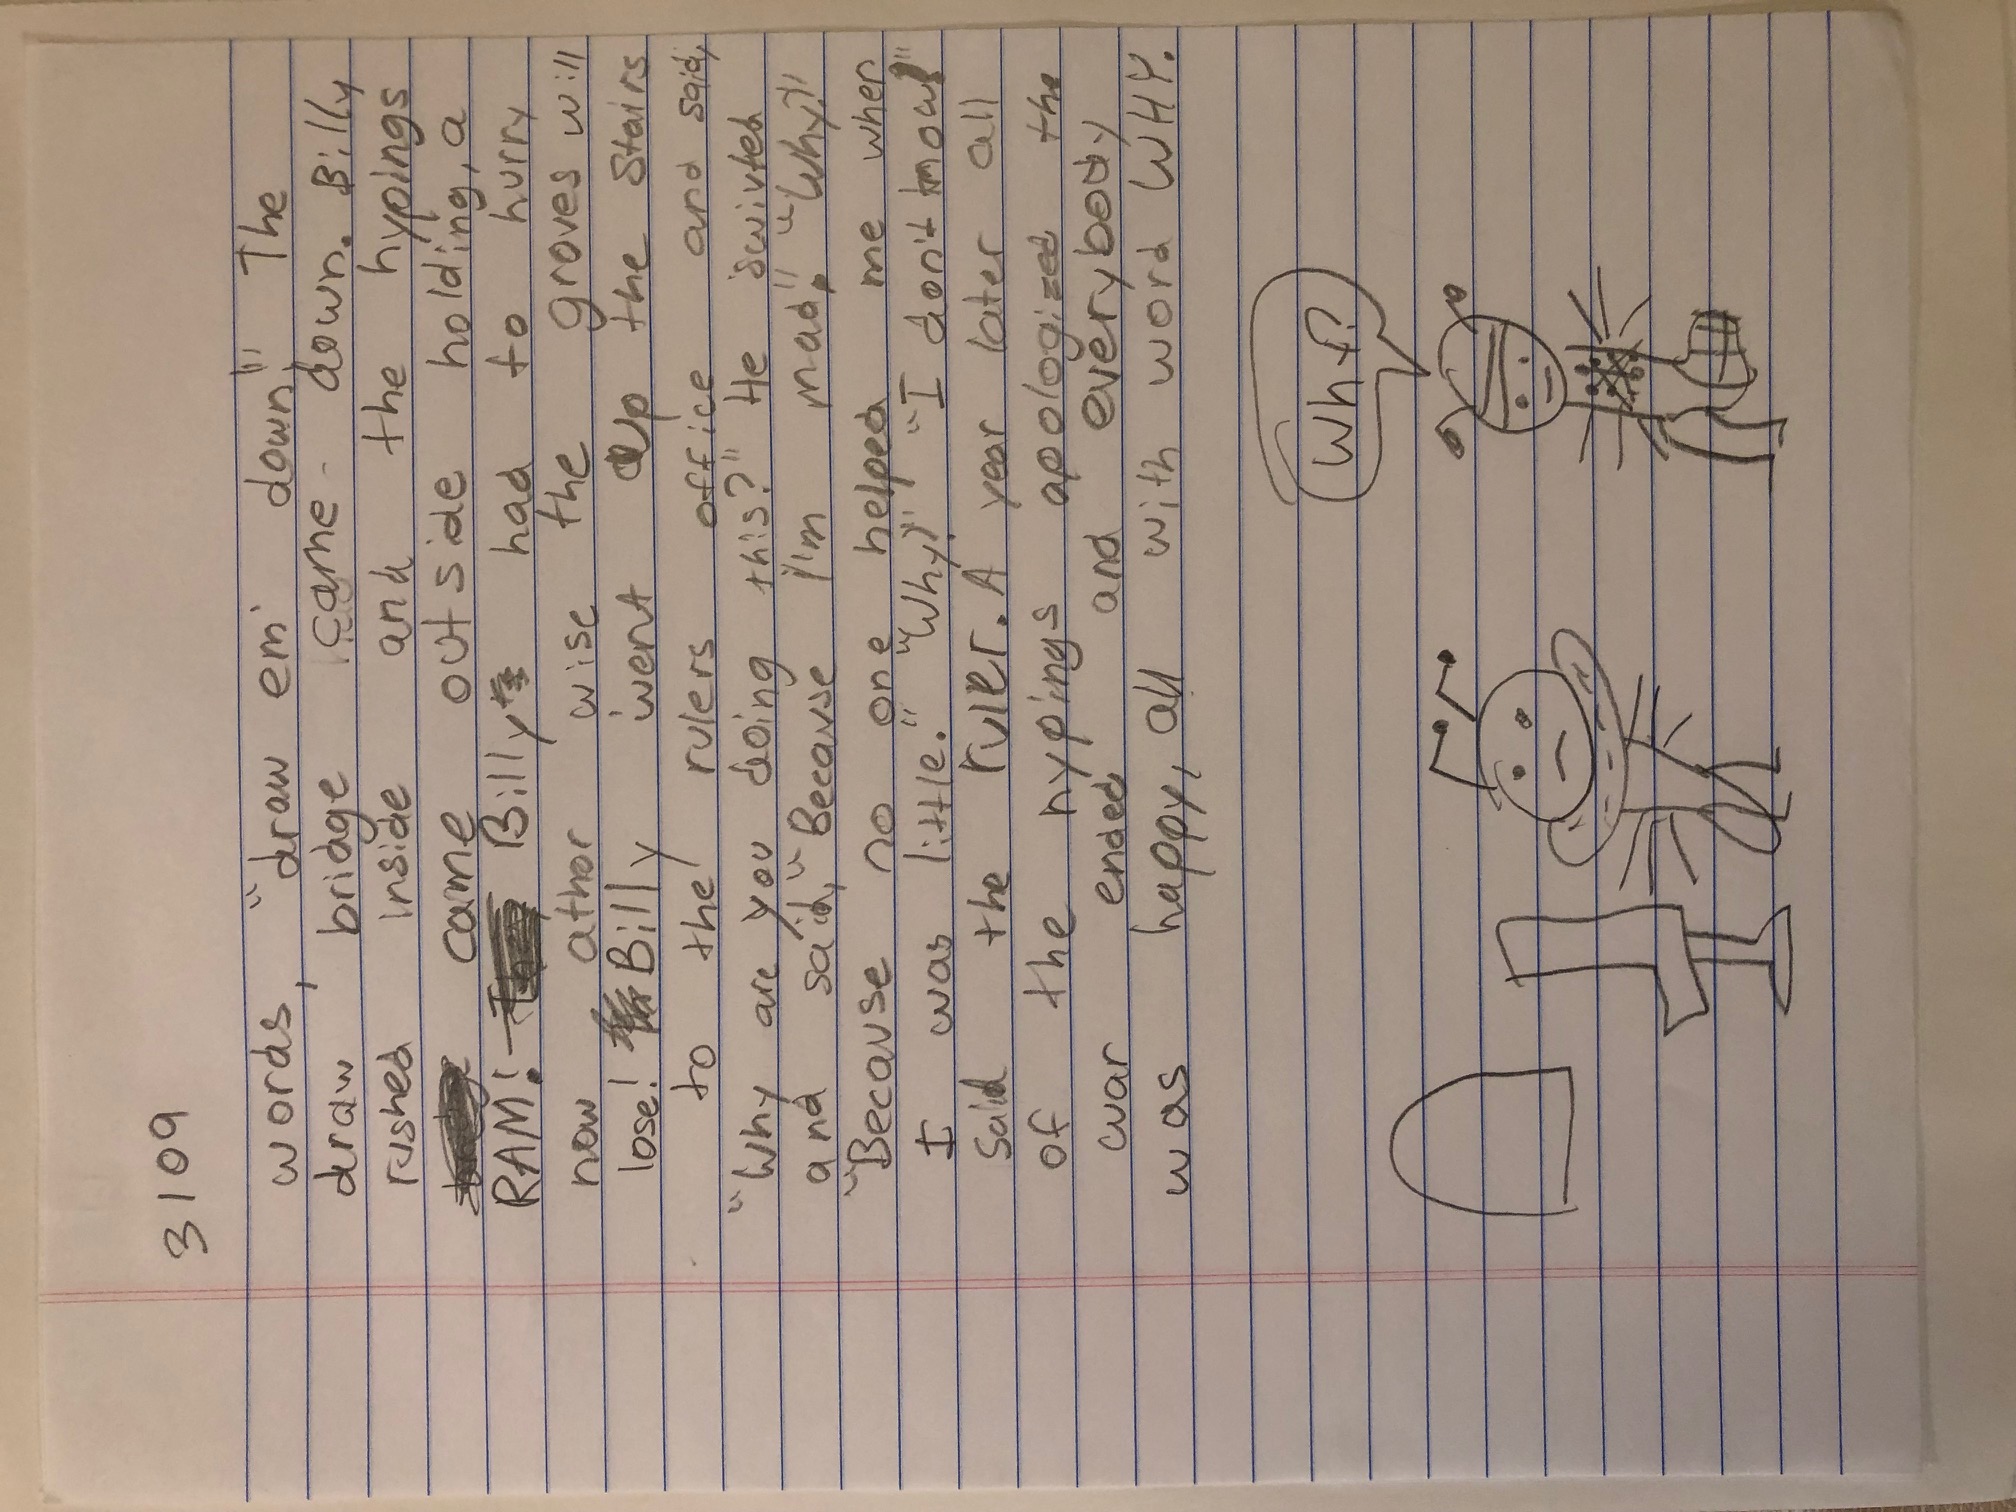 3109
words, "draw em' down!" The
draw bridge came down. Billy
rushed inside and the hypings
came outside holding, a
RAM! Billy had to hurry
now athor wise the groves will
lose! Billy went up the stairs
to the rulers office and said,
"Why are you doing this?" He swivted
and said, "Because I'm mad." "Why?"
"Because no one helped me when
I was little." "Why?" "I don't know!"
said the ruler. A year later all
of the hypings apologized the
war ended and everybody
was happy, all with word WHY.
Why?